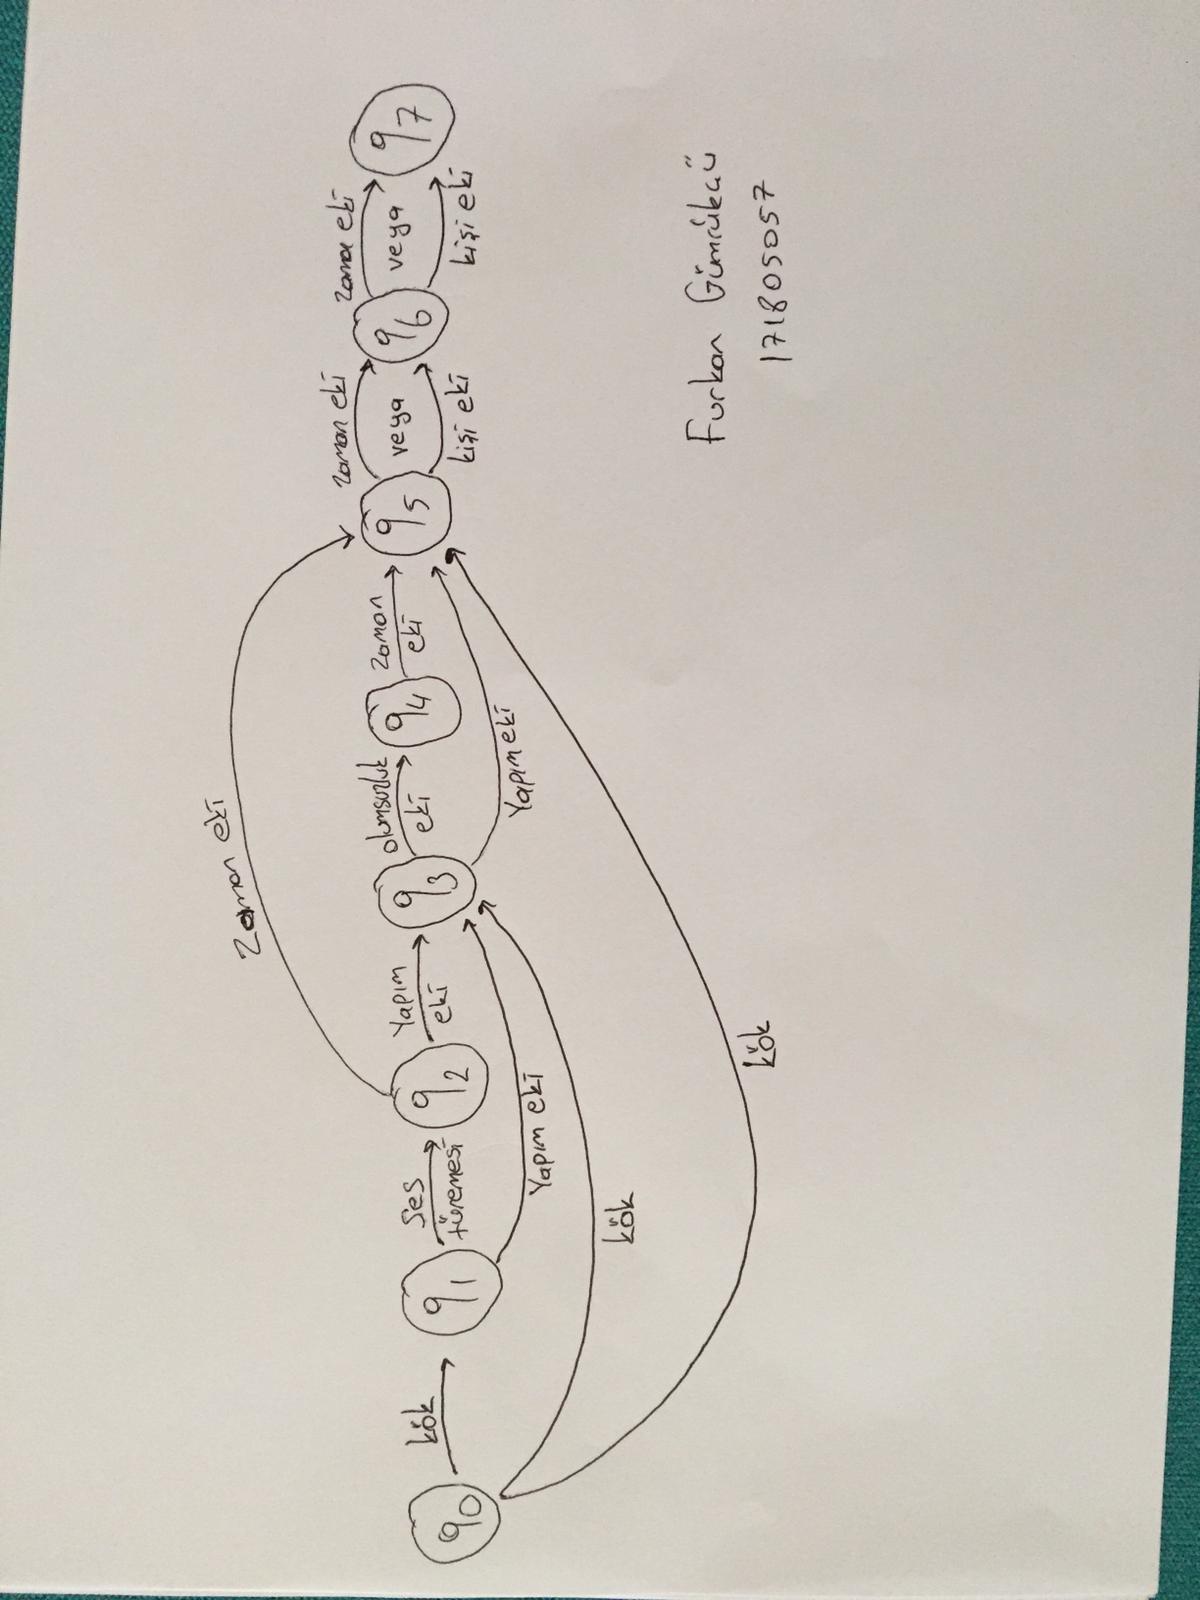 Zaman eki
q0
kök
q1
Ses
türemesi
q2
Yapım
eki
q3
olumsuzluk
eki
q4
Zaman
eki
q5
Zaman eki
veya
kişi eki
q6
Zaman eki
veya
kişi eki
q7
Yapım eki
Yapım eki
kök
kök
Furkan Gümrükcü
171805057